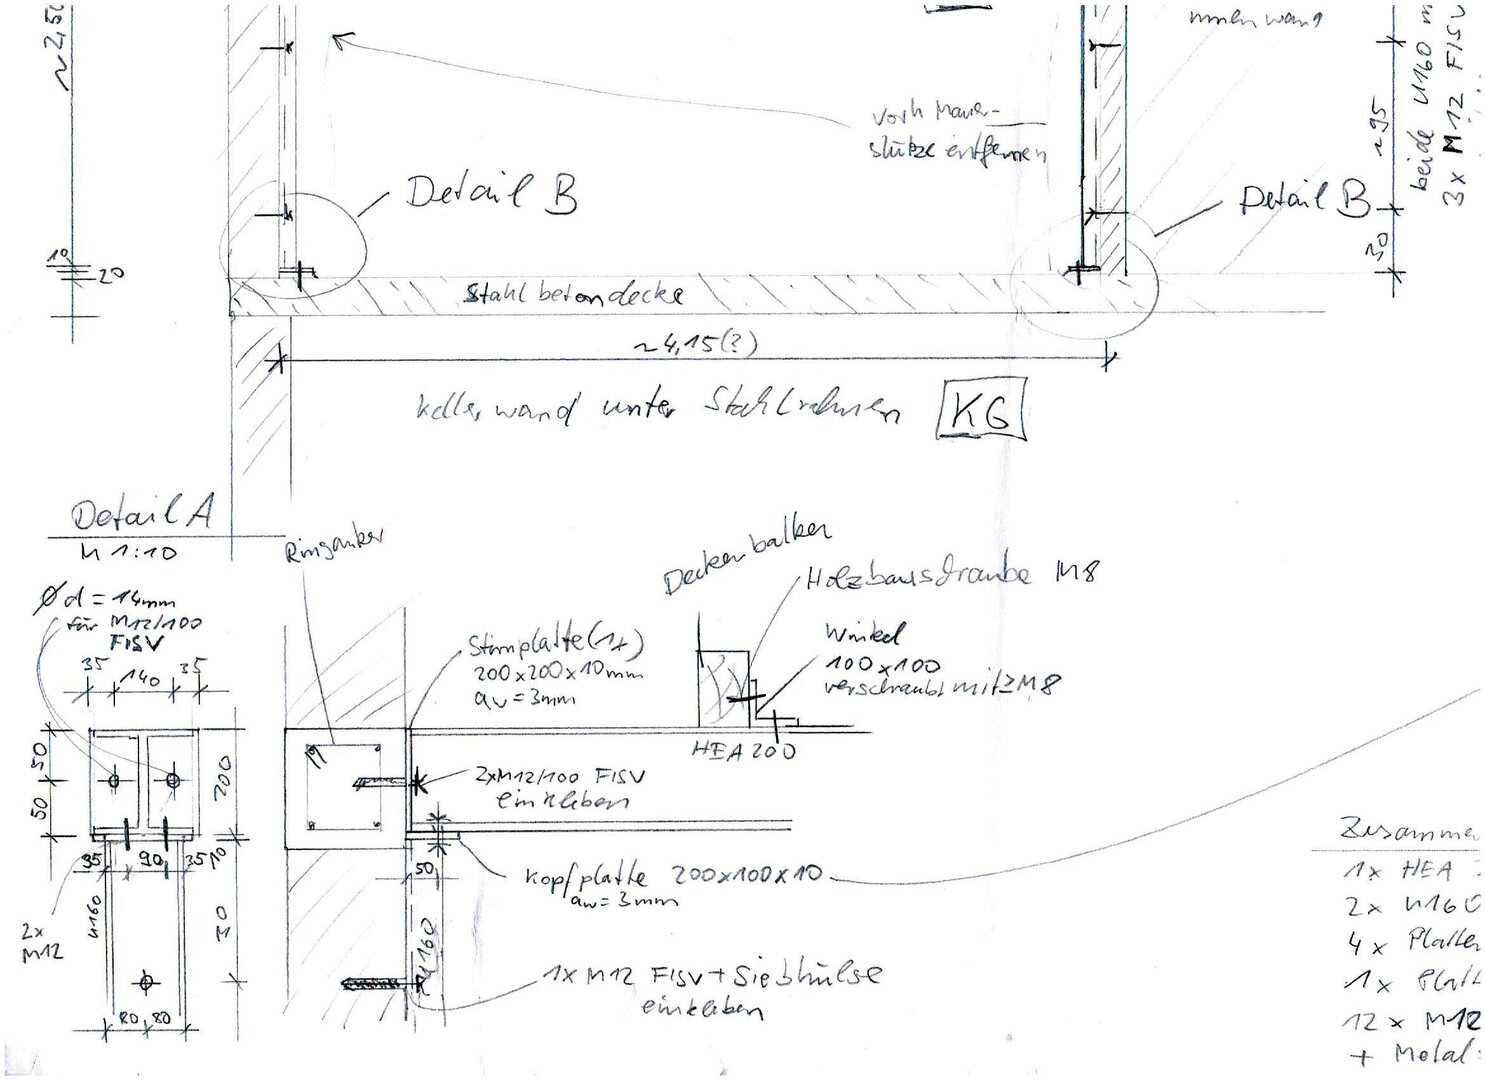 ~2,50
innenwand
beide U160 m
3x M12 FISV
~95
30
vorh Mauer-
stütze entfernen
Detail B
Detail B
10
20
Stahlbetondecke
~4,15(?)
Kellerwand unter Stahlrahmen
KG
Detail A
M 1:10
Ringanker
Deckenbalken
Holzbauschraube M8
Ød = 14mm
für M12/100
FISV
35
140
35
Stirnplatte (1x)
200x200x10mm
aw = 3mm
Winkel
100x100
verschraubt mit ≥ M8
HEA 200
50
50
200
2xM12/100 FISV
einkleben
35
90
35
10
50
Kopfplatte 200x100x10
aw = 3mm
U160
30
2x
M12
U160
1x M12 FISV + Siebhülse
einkleben
80
80
Zusamme
1x HEA
2x U160
4x Platten
1x Platt
12x M12
+ Metal